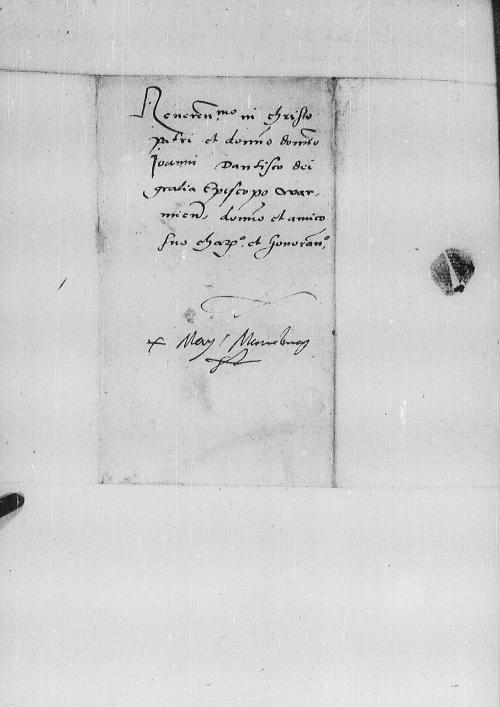 Reueren^mo in christo
patri et domno domno
Joanni Dantisco dei
gratia Episcopo War,
mien, domno et amico
suo char^o. et honoran^o.